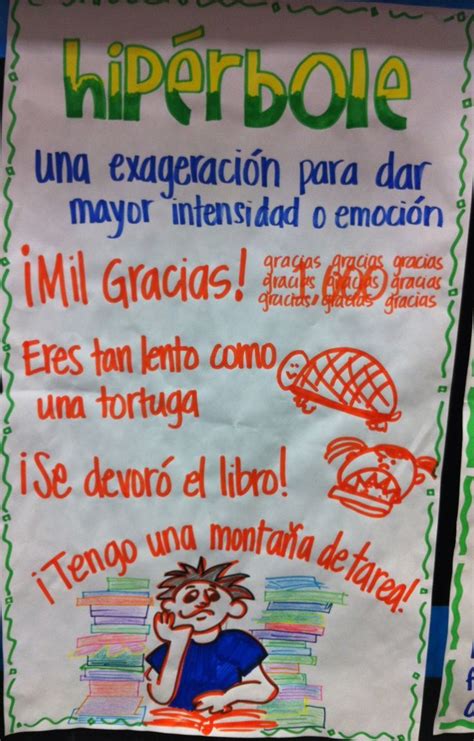 hipérbole
una exageración para dar
mayor intensidad o emoción
¡Mil Gracias!
gracias gracias gracias
gracias gracias gracias
gracias gracias gracias
1,000
Eres tan lento como
una tortuga
¡Se devoró el libro!
¡Tengo una montaña de tarea!